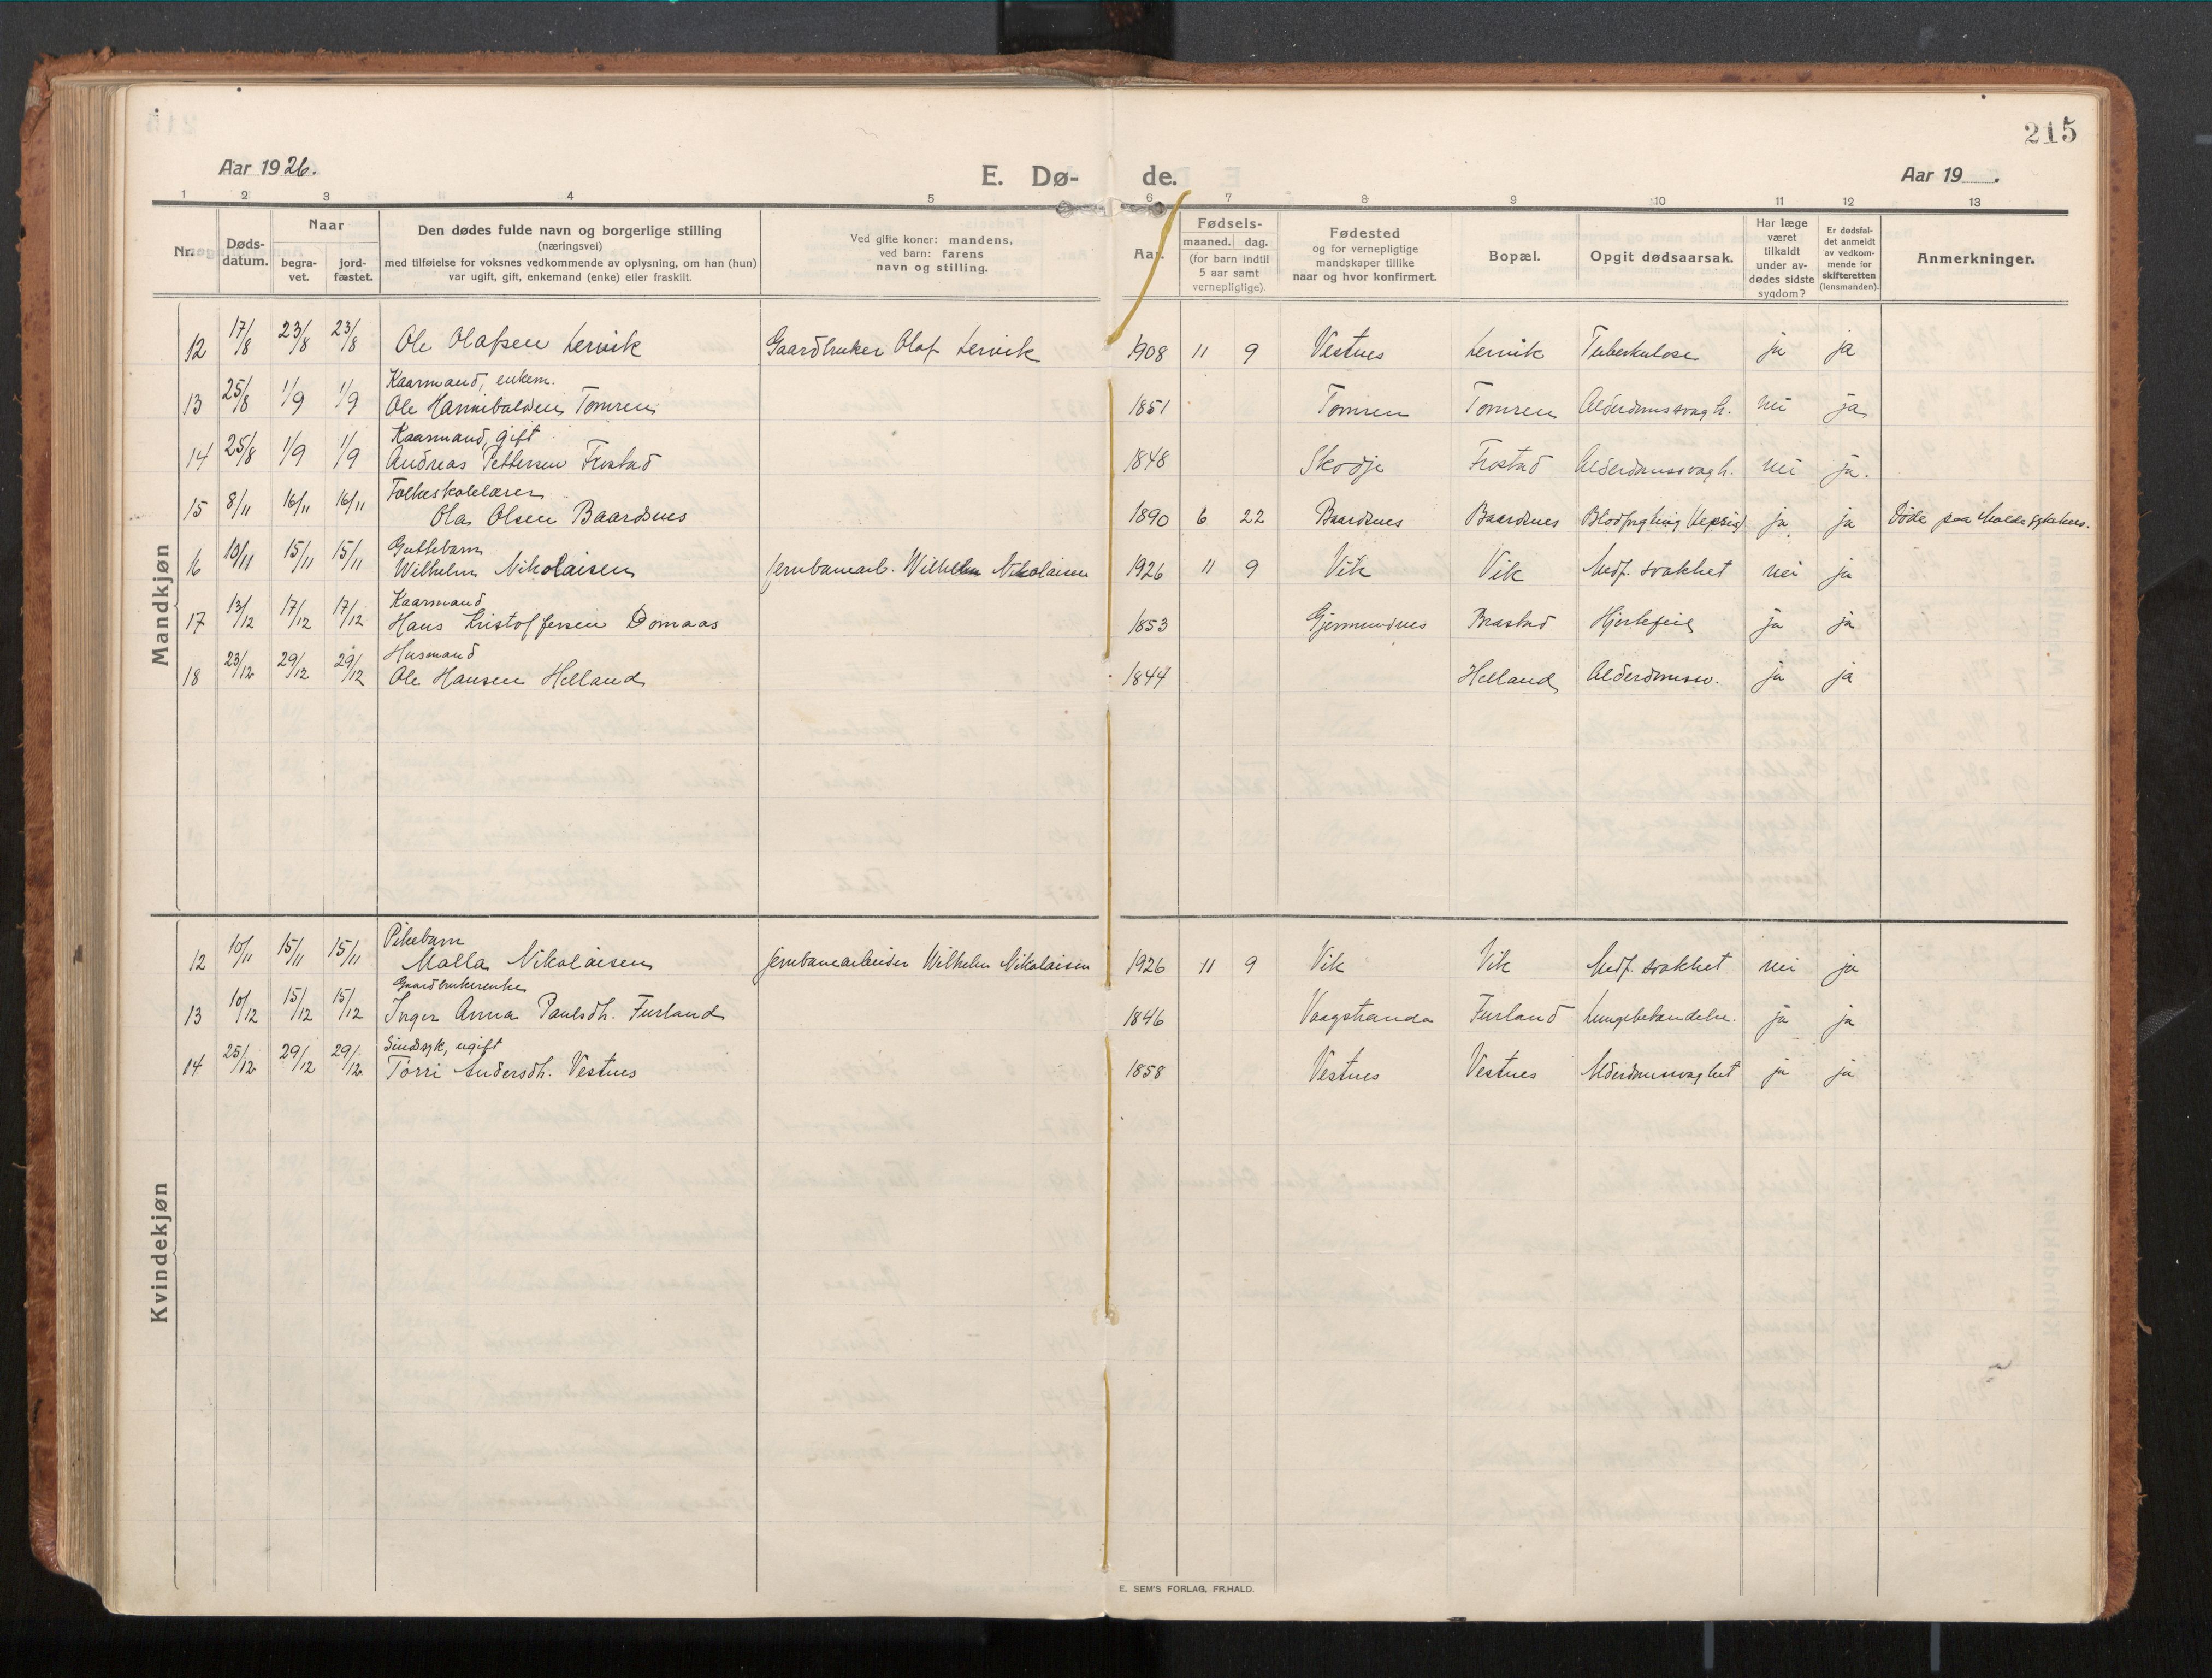 215
Aar 1926.
E. Dø- de.
Aar 19 .
1 2 3 4 5 6 7 8 9 10 11 12 13
Nr.
Døds-
datum.
Naar
begra-
vet.
jord-
fæstet.
Den dødes fulde navn og borgerlige stilling
(næringsvei)
med tilføielse for voksnes vedkommende av oplysning, om han (hun)
var ugift, gift, enkemand (enke) eller fraskilt.
Ved gifte koner: mandens,
ved barn: farens
navn og stilling.
Aar.
Fødsels-
maaned. dag.
(for barn indtil
5 aar samt
vernepligtige)
Fødested
og for vernepligtige
mandskaper tillike
naar og hvor konfirmert.
Bopæl.
Opgit dødsaarsak.
Har læge
været
tilkaldt
under av-
dødes sidste
sygdom?
Er dødsfal-
det anmeldt
av vedkom-
mende for
skifteretten
(lensmanden).
Anmerkninger.
Mandkjøn
12 17/8 23/8 23/8 Ole Olafsen Lervik Gaardbruker Olaf Lervik 1908 11 9 Vestnes Lervik Tuberkulose ja ja
Kaarmand, enkem.
13 25/8 1/9 1/9 Ole Hannibalsen Tomren 1851 Tomren Tomren Alderdomssvagh. nei ja
Kaarmand, gift
14 25/8 1/9 1/9 Andreas Pettersen Frostad 1848 Skodje Frostad Alderdomssvagh. nei ja.
Folkeskolelærer
15 8/11 16/11 16/11 Ola Olsen Baardsnes 1890 6 22 Baardsnes Baardsnes Blodforgiftning (sepsis) ja ja Døde paa Molde sykehus.
Guttebarn
16 10/11 15/11 15/11 Wilhelm Nikolaisen Jernbanearb. Wilhelm Nikolaisen 1926 11 9 Vik Vik Medf. svakhet nei ja
Kaarmand
17 13/12 17/12 17/12 Hans Kristoffersen Domaas 1853 Gjermundnes Brastad Hjertefeil ja ja
Husmand
18 23/12 29/12 29/12 Ole Hansen Helland 1844 Helland Alderdomssv. ja ja
Kvindekjøn
Pikebarn
12 10/11 15/11 15/11 Malla Nikolaisen Jernbanearbeider Wilhelm Nikolaisen 1926 11 9 Vik Vik Medf. svakhet nei ja
Gaardbrukerenke
13 10/12 15/12 15/12 Inger Anna Paulsdh. Furland 1846 Vaagstranda Furland Lungebetændelse. ja ja
Sindssyk, ugift
14 25/12 29/12 29/12 Torri Andersdh. Vestnes 1858 Vestnes Vestnes Alderdomssvaghet ja ja
E. SEM'S FORLAG, FR.HALD.